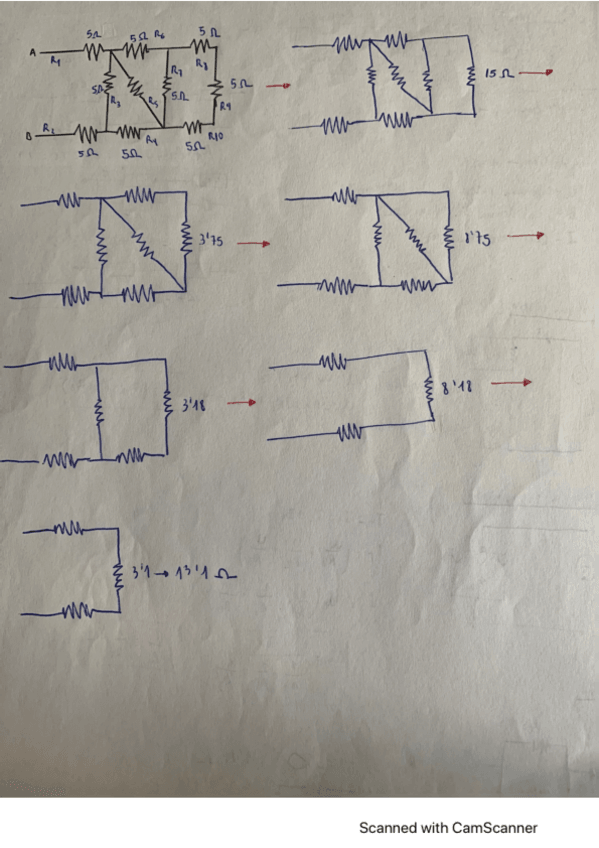 5Ω 5Ω R6 5Ω
A R1 R7 R8
5Ω R3 R5 5Ω 5Ω R9 15Ω
B R2 R4 5Ω R10
5Ω 5Ω
3'75 8'75
3'18 8'18
3'1 → 13'1 Ω
Scanned with CamScanner